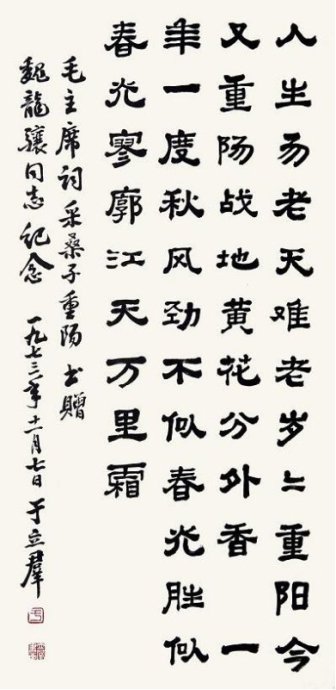 人生易老天难老岁々重阳今
又重陽战地黄花分外香 一
年一度秋风劲不似春光胜似
春光寥廓江天万里霜
毛主席词采桑子重陽 书贈
魏龍驤同志纪念 一九七三年十一月七日 于立羣